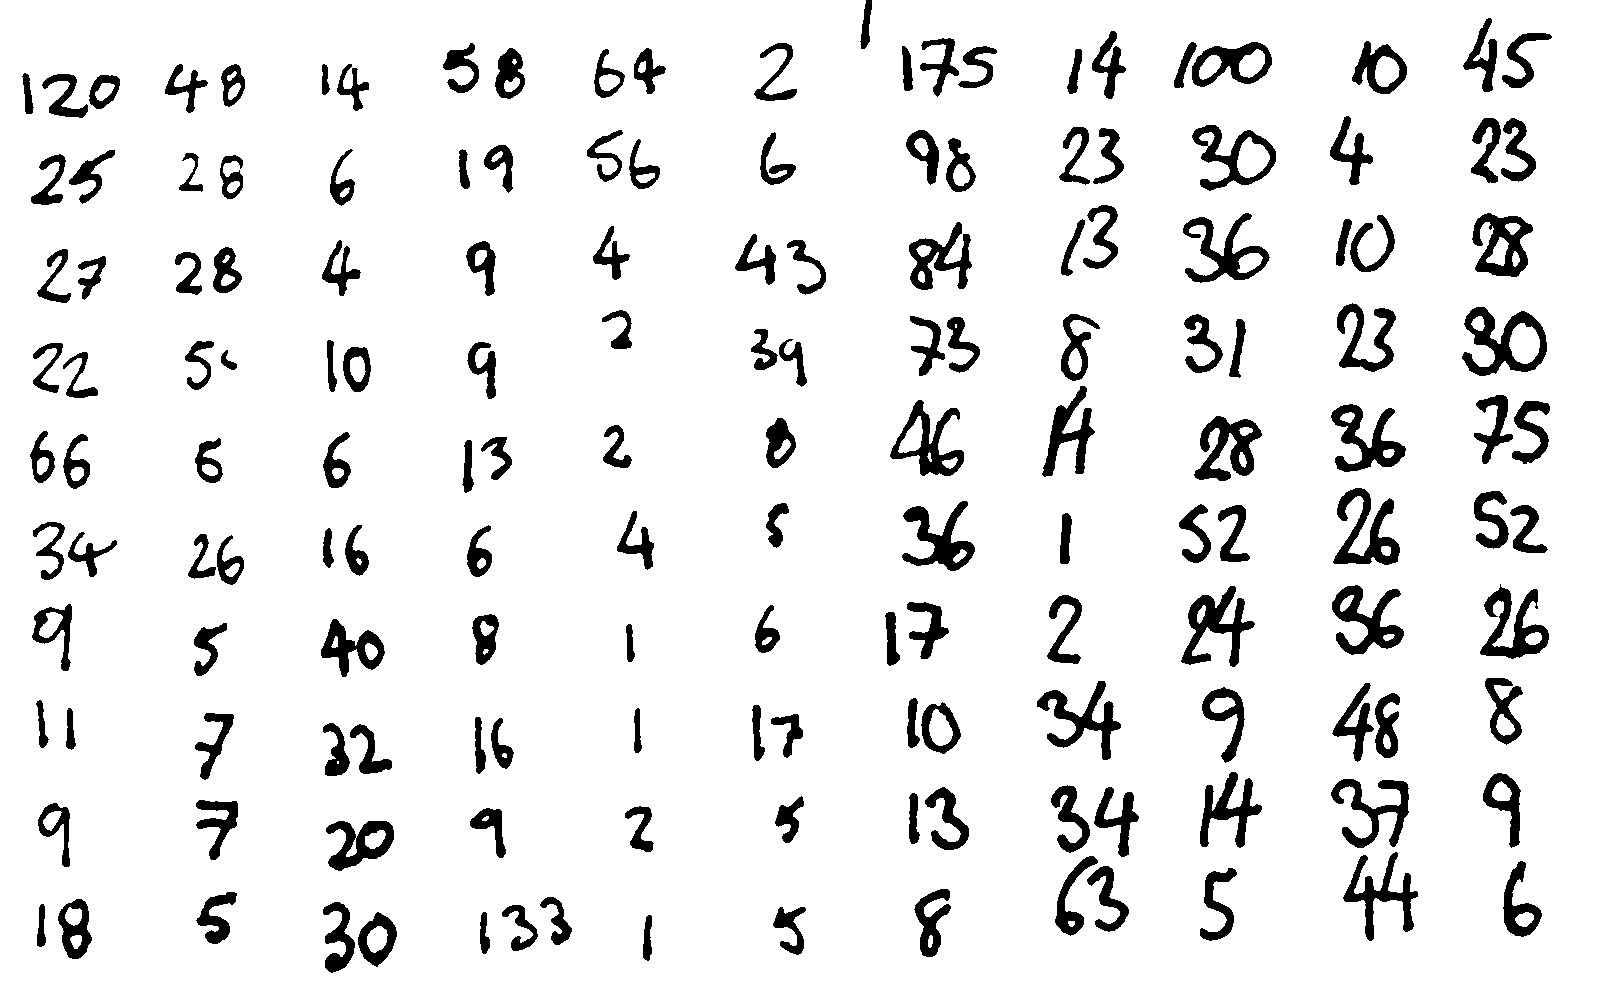 120 48 14 58 64 2 175 14 100 10 45
25 28 6 19 56 6 98 23 30 4 23
27 28 4 9 4 43 84 13 36 10 28
22 10 9 2 39 73 8 31 23 30
66 6 6 13 2 8 46 14 28 36 75
34 26 16 6 4 5 36 1 52 26 52
9 5 40 8 1 6 17 2 24 36 26
11 7 32 16 1 17 10 34 9 48 8
9 7 20 9 2 5 13 34 14 37 9
18 5 30 133 1 5 8 63 5 44 6